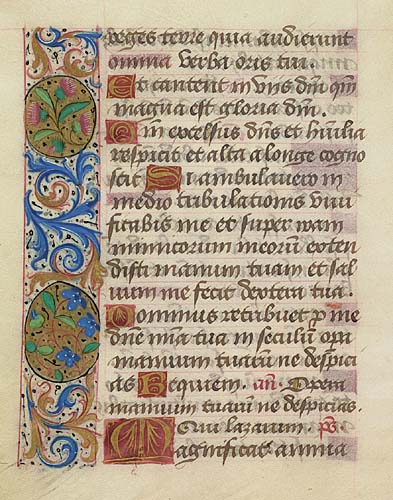 reges terre quia audierunt
omnia verba oris tui.
Et cantent in viis dni qm
magna est gloria dni.
Qm excelsus dns et humilia
respicit et alta a longe cogno
scit Si ambulavero in
medio tribulationis vivi
ficabis me et super iram
inimicorum meoru exten
disti manum tuam et sal
vum me fecit dextera tua.
Dominus retribuet p me
dne mia tua in seculu opa
manuum tuaru ne despici
as Requiem. an. Opera
manuum tuaru ne despicias.
Qui lazarum. ps
Magnificat anima